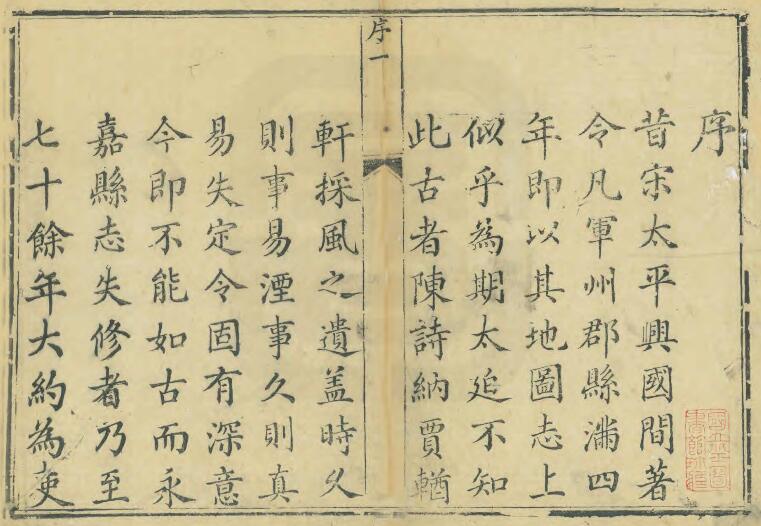 序
昔宋太平興國間著
令凡軍州郡縣滿四
年即以其地圖志上
似乎為期太廹不知
此古者陳詩納賈輶
序一
軒採風之遺盖時久
則事易湮事久則真
易失定令固有深意
今即不能如古而永
嘉縣志失修者乃至
七十餘年大約為吏